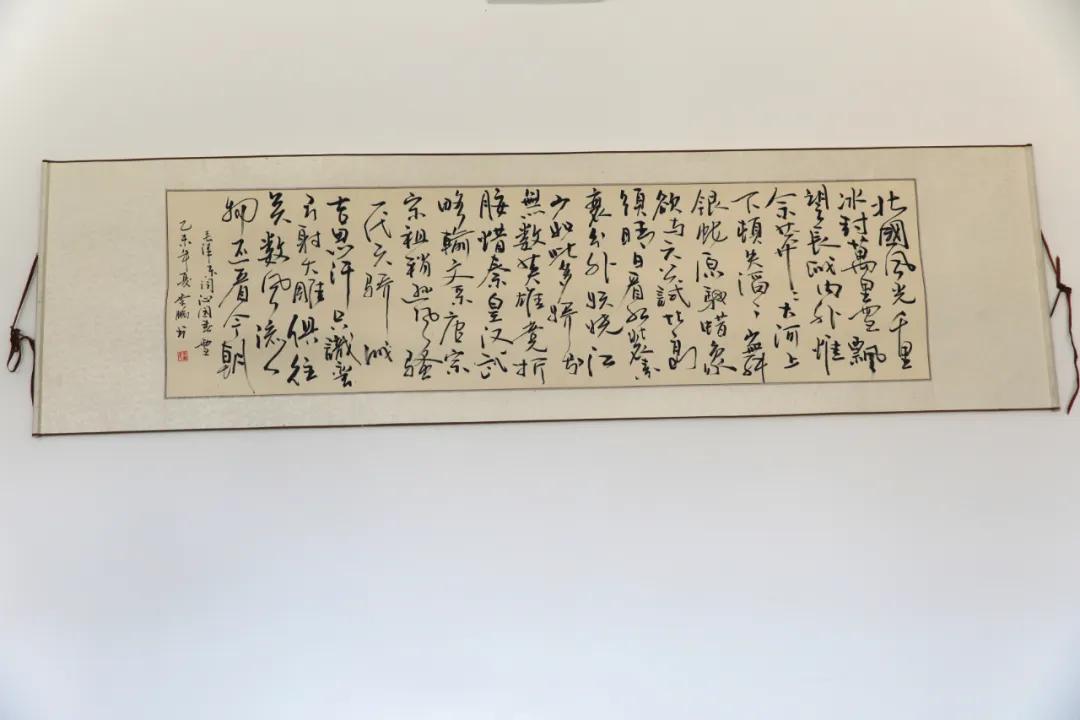 北國风光千里
冰封萬里雪飄
望長城内外惟
余莽々大河上
下頓失滔々山舞
銀蛇原馳蜡象
欲与天公試比高
須晴日看红装素
裹分外妖娆江
山如此多娇引
無数英雄竞折
腰惜秦皇汉武
略輸文采唐宗
宋祖稍逊风骚
一代天骄成
吉思汗只識彎
弓射大雕俱往
矣数风流人
物还看今朝
毛泽东词沁园春雪
乙未年夏